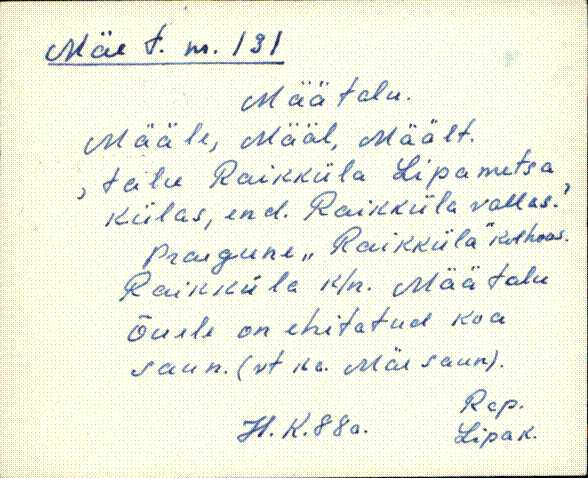 Mäe t. nr. 131
Määtalu.
Määle, Määl, Mäält.
, talu Raikküla Lipametsa
külas, end. Raikküla vallas.'
Praegune „Raikküla" kolhoos.
Raikküla k/n. Määtalu
Õuele on ehitatud koa
saun. (vt ka. Mäe saun).
Rap.
H. K. 88a. Lipak.